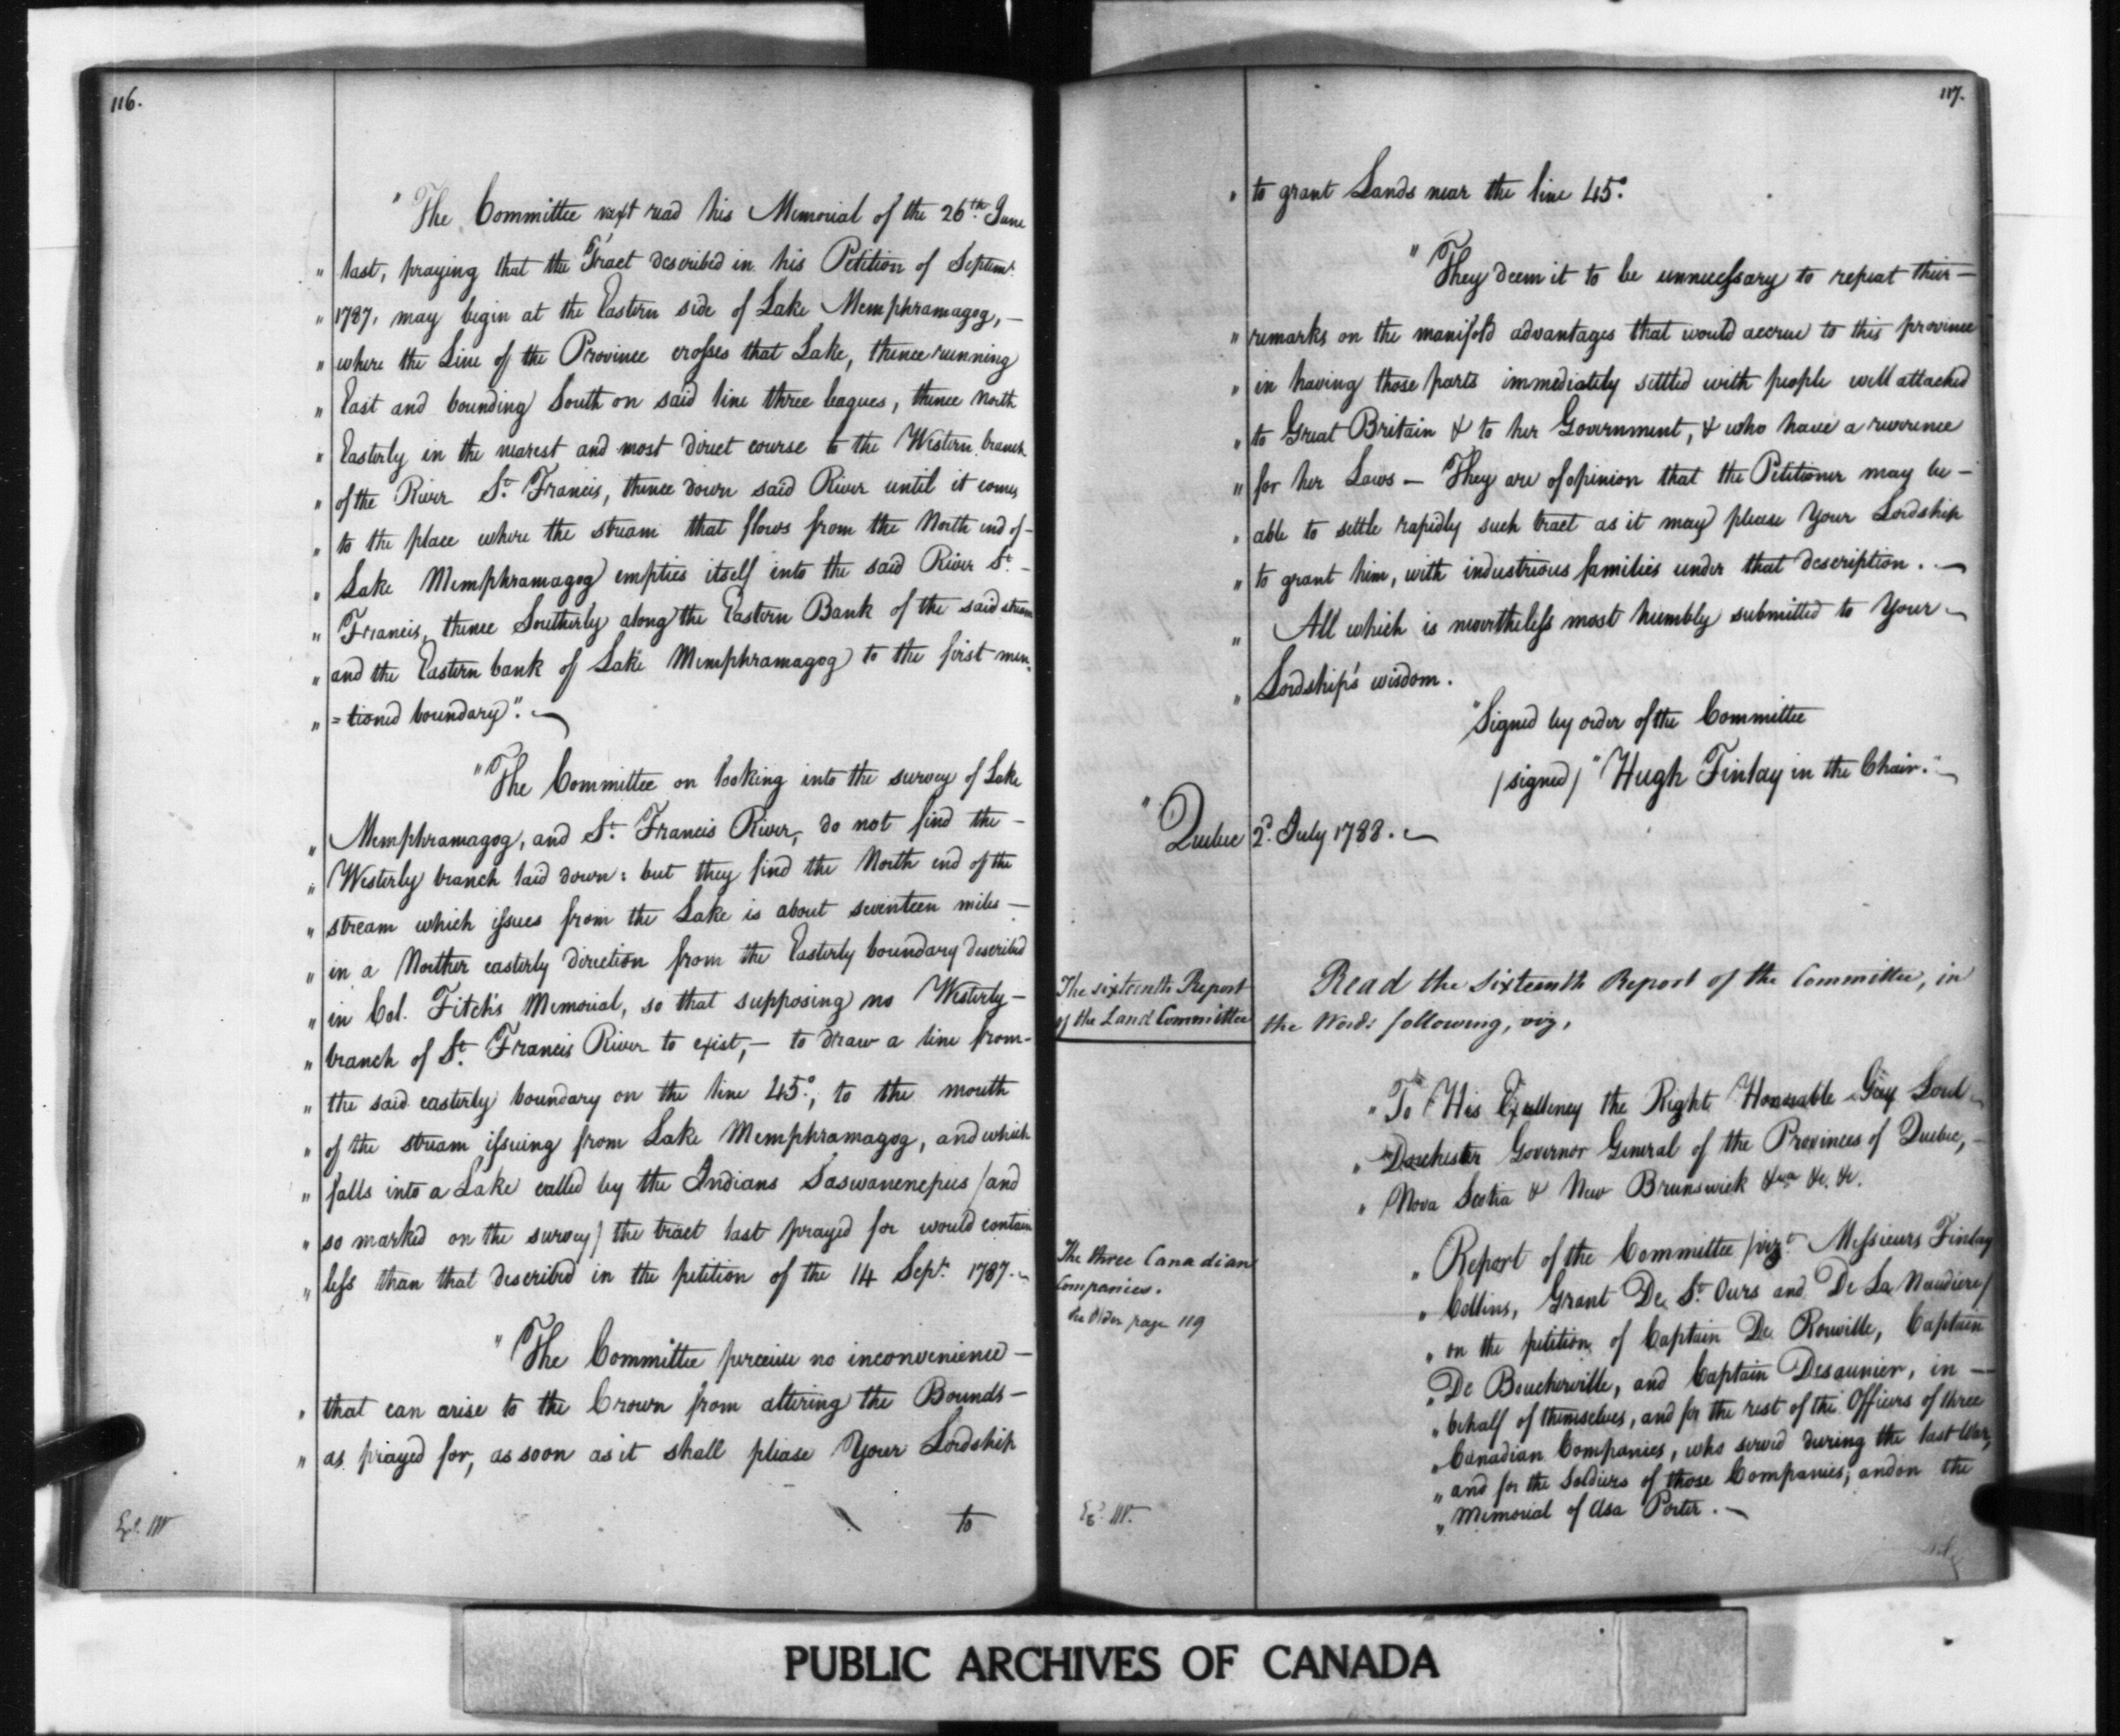 116.
" The Committee next read his Memorial of the 26th. June
" last, praying that the Tract described in his Petition of Septemr.
" 1787, may begin at the Eastern side of Lake Memphramagog, —
" where the Line of the Province crosses that Lake, thence running
" East and bounding South on said line three leagues, thence North
" Easterly in the nearest and most direct course to the Western branch
" of the River St. Francis, thence down said River until it comes
" to the place where the stream that flows from the North end of -
" Lake Memphramagog empties itself into the said River St. -
" Francis, thence Southerly along the Eastern Bank of the said stream
" and the Eastern bank of Lake Memphramagog to the first men
" = tioned boundary". —
" The Committee on looking into the survey of Lake
" Memphramagog, and St. Francis River, do not find the -
" Westerly branch laid down: but they find the North end of the
" stream which issues from the Lake is about seventeen miles -
" in a Norther easterly direction from the Easterly boundary described
" in Col. Fitch's Memorial, so that supposing no Westerly -
" branch of St. Francis River to exist, - to draw a line from -
" the said easterly boundary on the line 45°, to the mouth
" of the stream issuing from Lake Memphramagog, and which
" falls into a Lake called by the Indians Saswanenepus / and
" so marked on the survey / the tract last prayed for would contain
" less than that described in the petition of the 14 Sept. 1787. —
" The Committee perceive no inconvenience -
" that can arise to the Crown from altering the Bounds -
" as prayed for, as soon as it shall please Your Lordship
to
117.
" to grant Lands near the line 45°.
" They deem it to be unnecessary to repeat their -
" remarks on the manifold advantages that would accrue to this province
" in having those parts immediately settled with people well attached
" to Great Britain & to her Government, & who have a reverence
" for her Laws — They are of opinion that the Petitioner may be -
" able to settle rapidly such tract as it may please Your Lordship
" to grant him, with industrious families under that description. —
" All which is nevertheless most humbly submitted to Your -
" Lordship's wisdom.
" Signed by order of the Committee
/ signed / " Hugh Finlay in the Chair." —
" Quebec 2d. July 1788. —
The sixteenth Report
of the Land Committee
Read the Sixteenth Report of the Committee, in
the Words following, viz,
" To His Excellency the Right Honorable Guy Lord -
" Dorchester Governor General of the Provinces of Quebec, -
" Nova Scotia & New Brunswick &ca &c. &c.
The three Canadian
Companies.
See Order page 119
" Report of the Committee / vizt. Messieurs Finlay
" Collins, Grant De St. Ours and De La Naudiere /
" on the petition of Captain De Rouville, Captain
" De Boucherville, and Captain Desaunier, in —
" behalf of themselves, and for the rest of the Officers of three
" Canadian Companies, who served during the last War,
" and for the Soldiers of those Companies; and on the
" Memorial of Asa Porter. —
PUBLIC ARCHIVES OF CANADA